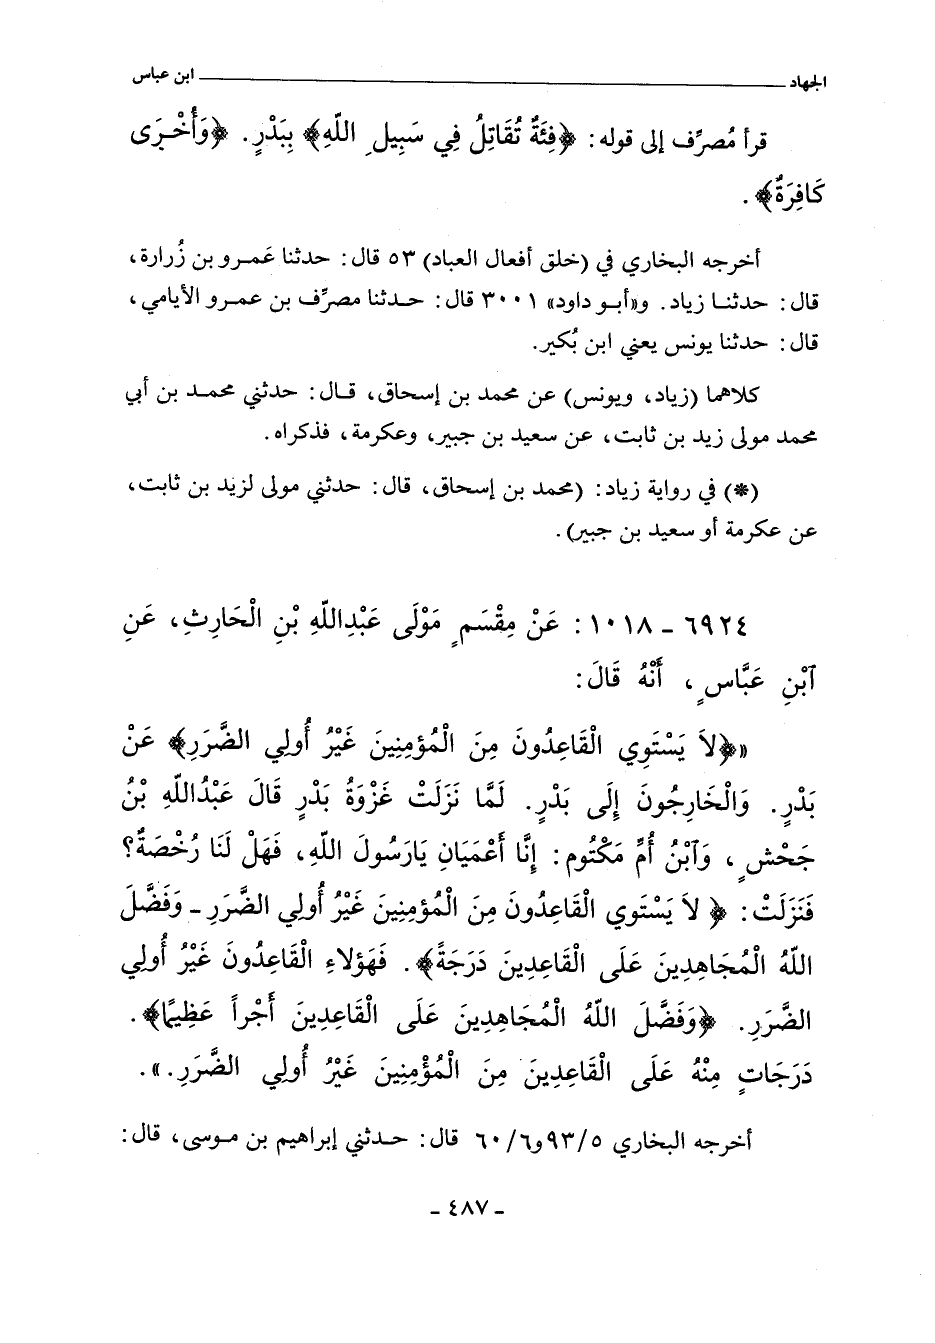 الجهاد ــــــــ ابن عباس
قرأ مُصرِّف إلى قوله: ﴿فِئَةٌ تُقَاتِلُ فِي سَبِيلِ اللّهِ﴾ بِبَدْرٍ. ﴿وَأُخْرَى
كَافِرَةٌ﴾.
أخرجه البخاري في (خلق أفعال العباد) ٥٣ قال: حدثنا عَمرو بن زُرارة،
قال: حدثنا زياد. و«أبو داود» ٣٠٠١ قال: حدثنا مصرِّف بن عمرو الأيامي،
قال: حدثنا يونس يعني ابن بُكير.
كلاهما (زياد، ويونس) عن محمد بن إسحاق، قال: حدثني محمد بن أبي
محمد مولى زيد بن ثابت، عن سعيد بن جبير، وعكرمة، فذكراه.
(*) في رواية زياد: (محمد بن إسحاق، قال: حدثني مولى لزيد بن ثابت،
عن عكرمة أو سعيد بن جبير).
٦٩٢٤ ـ ١٠١٨: عَنْ مِقْسَمٍ مَوْلَى عَبْدِاللّهِ بْنِ الْحَارِثِ، عَنِ
آبْنِ عَبَّاسٍ، أَنَّهُ قَالَ:
«﴿لاَ يَسْتَوِي الْقَاعِدُونَ مِنَ الْمُؤْمِنِينَ غَيْرُ أُولِي الضَّرَرِ﴾ عَنْ
بَدْرٍ. وَالْخَارِجُونَ إِلَى بَدْرٍ. لَمَّا نَزَلَتْ غَزْوَةُ بَدْرٍ قَالَ عَبْدُاللّهِ بْنُ
جَحْشٍ، وَآبْنُ أُمِّ مَكْتُومٍ: إِنَّا أَعْمَيَانِ يَارَسُولَ اللّهِ، فَهَلْ لَنَا رُخْصَةٌ؟
فَنَزَلَتْ: ﴿لاَ يَسْتَوِي الْقَاعِدُونَ مِنَ الْمُؤْمِنِينَ غَيْرُ أُولِي الضَّرَرِ ـ وَفَضَّلَ
اللّهُ الْمُجَاهِدِينَ عَلَى الْقَاعِدِينَ دَرَجَةً﴾. فَهَؤلاءِ الْقَاعِدُونَ غَيْرُ أُولِي
الضَّرَرِ. ﴿وَفَضَّلَ اللّهُ الْمُجَاهِدِينَ عَلَى الْقَاعِدِينَ أَجْراً عَظِيمًا﴾.
دَرَجَاتٍ مِنْهُ عَلَى الْقَاعِدِينَ مِنَ الْمُؤْمِنِينَ غَيْرُ أُولِي الضَّرَرِ.».
أخرجه البخاري ٩٣/٥ و٦٠/٦ قال: حدثني إبراهيم بن موسى، قال:
ـ ٤٨٧ ـ